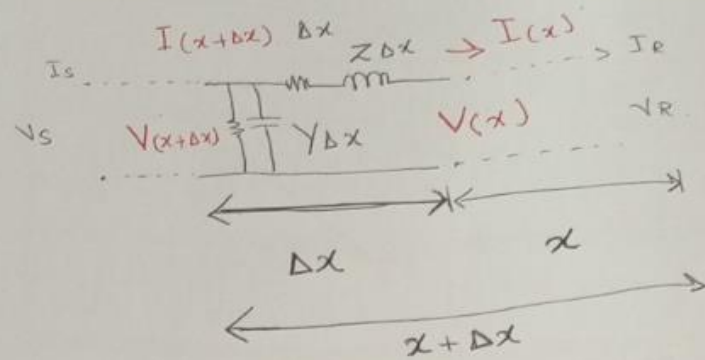 I(x+Δx) Δx
ZΔx → I(x)
Is IR
Vs V(x+Δx) YΔx V(x) VR
Δx x
x + Δx